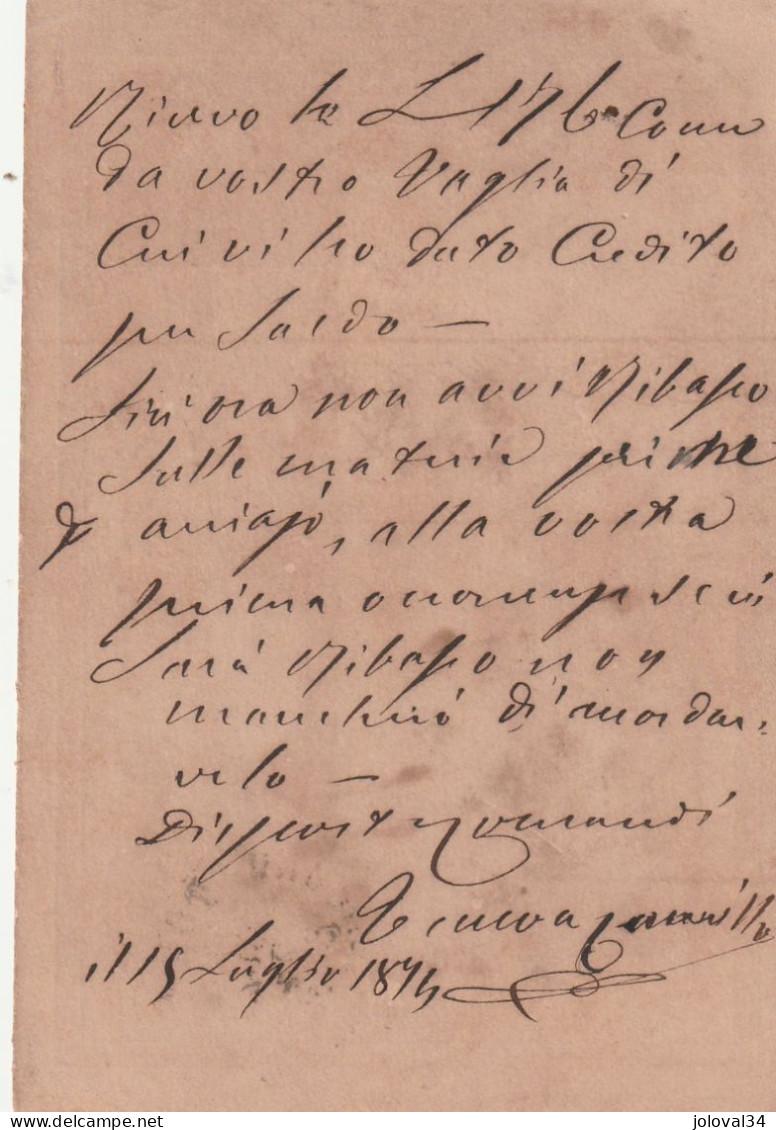 Ricevo le L 176 Come
da vostro Vaglia di
Cui vi ho dato Credito
per Saldo —
Sin ora non avvi Ribasso
Sulle materie prime
alla vostra
prima
Sarà Ribasso non
mancherò di
velo —
Disposto Comandi
il 15 Luglio 1874
delcampe.net
joloval34